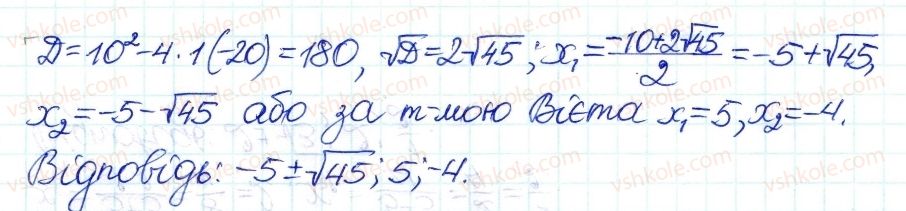 D=10²-4·1(-20)=180, √D=2√45; x₁=(-10+2√45)/2=-5+√45,
x₂=-5-√45 або за т-мою Вієта x₁=5, x₂=-4.
Відповідь: -5±√45; 5; -4.